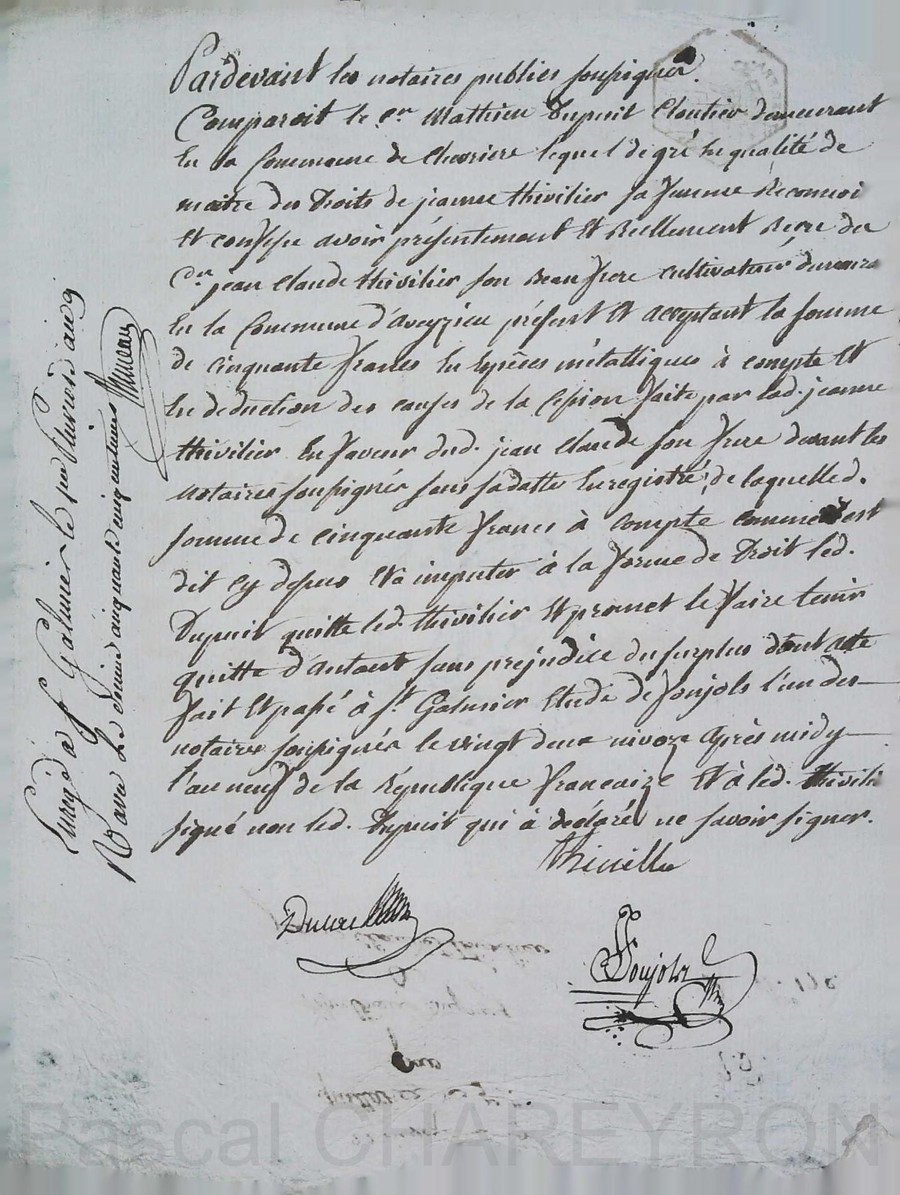 Pardevant les notaires publics soussignés.
Comparoit le cen Mathieu Dupuit Cloutier demeurant
En la Commune de Chevriere lequel de gré En qualité de
maitre des Droits de jeanne thivilier sa femme Reconnoi
Et confesse avoir présentement Et Réellement Reçu du
Cen jean Claude thivilier son Beau frere cultivateur demeura
En la Commune d'aveyzieu présent Et acceptant la somme
de cinquante francs En Espèces métalliques à compte Et
En deduction des causes de la Cession faite par lad. jeanne
thivilier En faveur dud. jean Claude son frere devant les
notaires soussignés sans sa datte Enregistré, de laquelle d.
somme de cinquante francs à compte comme est
dit cy dessus Et a imputer à la forme de Droit led.
Dupuit quitte led. thivilier Et promet le faire tenir
quitte d'autant sans prejudice du surplus dont acte
fait Et passé à St. Galmier Etude de Sonjols l'un des
notaires soussignés le vingt deux nivoze après midy
l'an neuf de la République francaize Et à led. thivili
signé non led. Dupuit qui à déclaré ne savoir signer.
thivillie
Ducreu
Sonjols
Enregé à St Galmier le
Reçu Le centimes
Pascal CHAREYRON